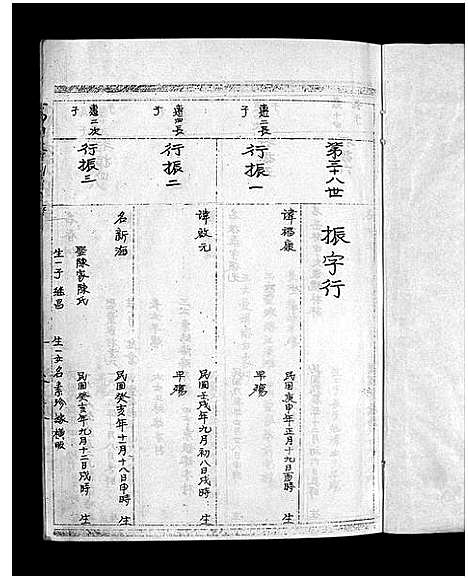 第三十八世
振字行
惠二長子
行振一
諱福康
民國庚申年正月十九日酉時生
早殤
惠四長子
行振二
諱啟元
民國壬戌年九月初八日戌時生
早殤
惠二次子
行振三
名新海
民國癸亥年十一月十八日申時生
娶陳家陳氏
民國癸亥年九月十二日戌時生
生一子 继昌
生一女名素珍嫁橫畈